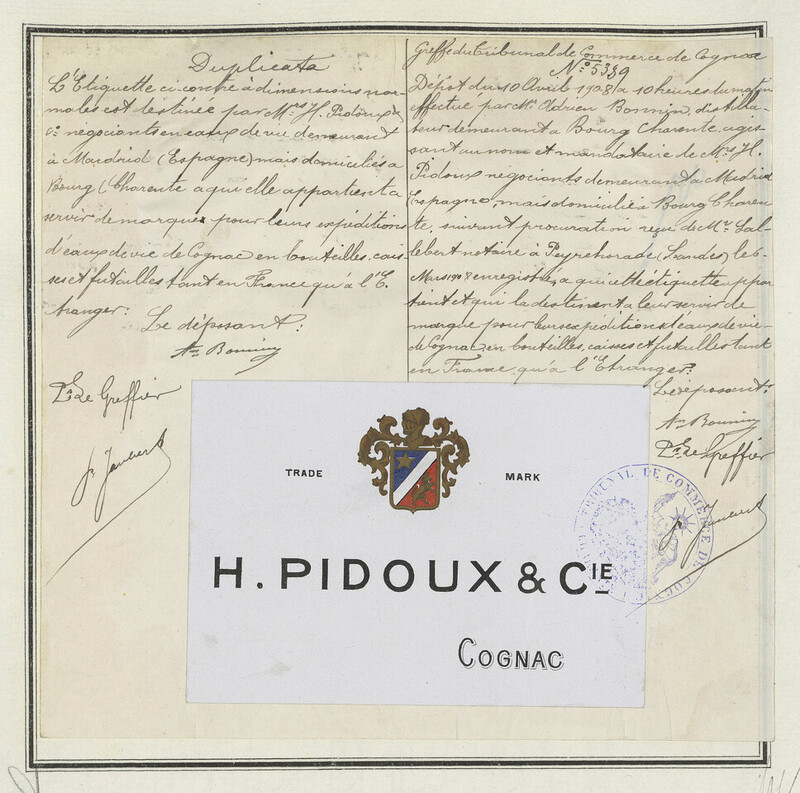 Duplicata
L'Etiquette ci-contre à dimensions nor-
males est destinée par Mrs H. Pidoux &
Cie négociants en eaux de vie demeurant
à Mardrid (Espagne) mais domiciliés à
Bourg Charente a qui elle appartient a
servir de marque pour leurs expéditions
d'eaux de vie de Cognac en bouteilles, cais-
ses et futailles tant en France qu'à l'E-
tranger.
Le déposant:
An Bonnin
Pr Le Greffier
Greffe du Tribunal de Commerce de Cognac
No 5389
Dépôt du 10 Avril 1908 à 10 heures du matin
effectué par Mr Adrien Bonnin, distilla-
teur demeurant à Bourg Charente, agis-
sant au nom et mandataire de Mrs H.
Pidoux négociants demeurant à Madrid
Espagne, mais domicilié à Bourg Charen-
te, suivant procuration reçu de Mr Lal-
lebert notaire à Peyrehorade (Landes) le 6
Mars 1908 enregistrée, a qui cette étiquette appar-
tient et qui la destinent a leur servir de
marque pour leurs expéditions d'eaux de vie
de Cognac, en bouteilles, caisses et futailles tant
en France qu'à l'Etranger.
Le déposant:
An Bonnin
Pr Le Greffier
TRADE MARK
H. PIDOUX & CIE
COGNAC
TRIBUNAL DE COMMERCE DE COGNAC